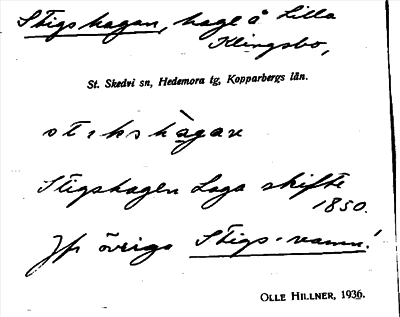 Stigshagan, hage å Lilla
Klingsbo,
St. Skedvi sn, Hedemora tg, Kopparbergs län.
Stigshagen Laga skifte
1850.
Jfr övriga Stigs-namn!
OLLE HILLNER, 1936.